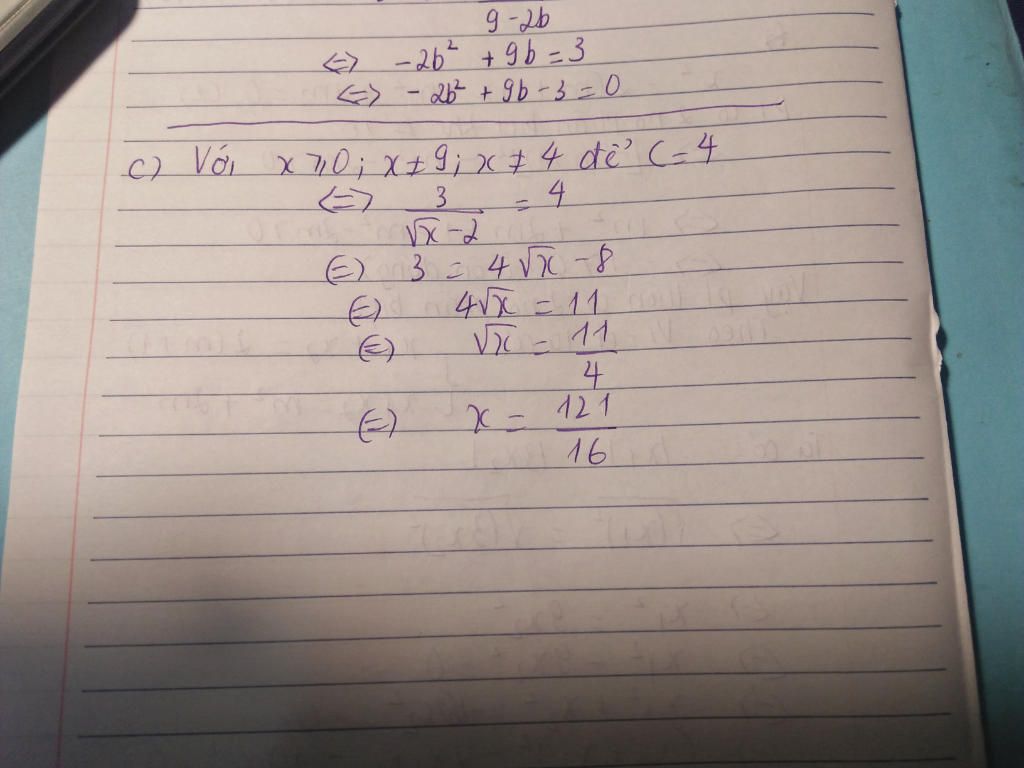 9 - 2b
<=> -2b² + 9b = 3
<=> -2b² + 9b - 3 = 0
c) Với x ≥ 0; x ≠ 9; x ≠ 4 để C = 4
<=> 3/(√x - 2) = 4
(=) 3 = 4√x - 8
(=) 4√x = 11
(=) √x = 11/4
(=) x = 121/16